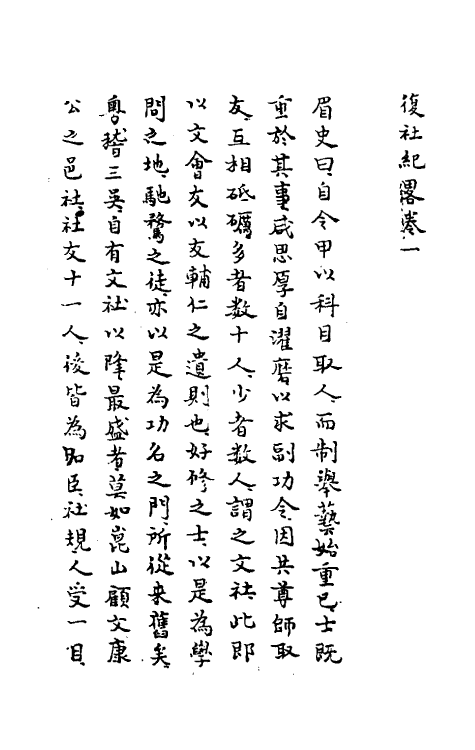 復社紀畧卷一
眉史曰自令甲以科目取人而制舉藝始重已士既
重於其事咸思厚自濯磨以求副功令因共尊師取
友互相砥礪多者数十人少者数人謂之文社此即
以文會友以友輔仁之遺則也好修之士以是為學
問之地馳騖之徒亦以是為功名之門所從来舊矣
粵稽三吳自有文社以降最盛者莫如崑山顧文康
公之邑社社友十一人後皆為名臣社規人受一目